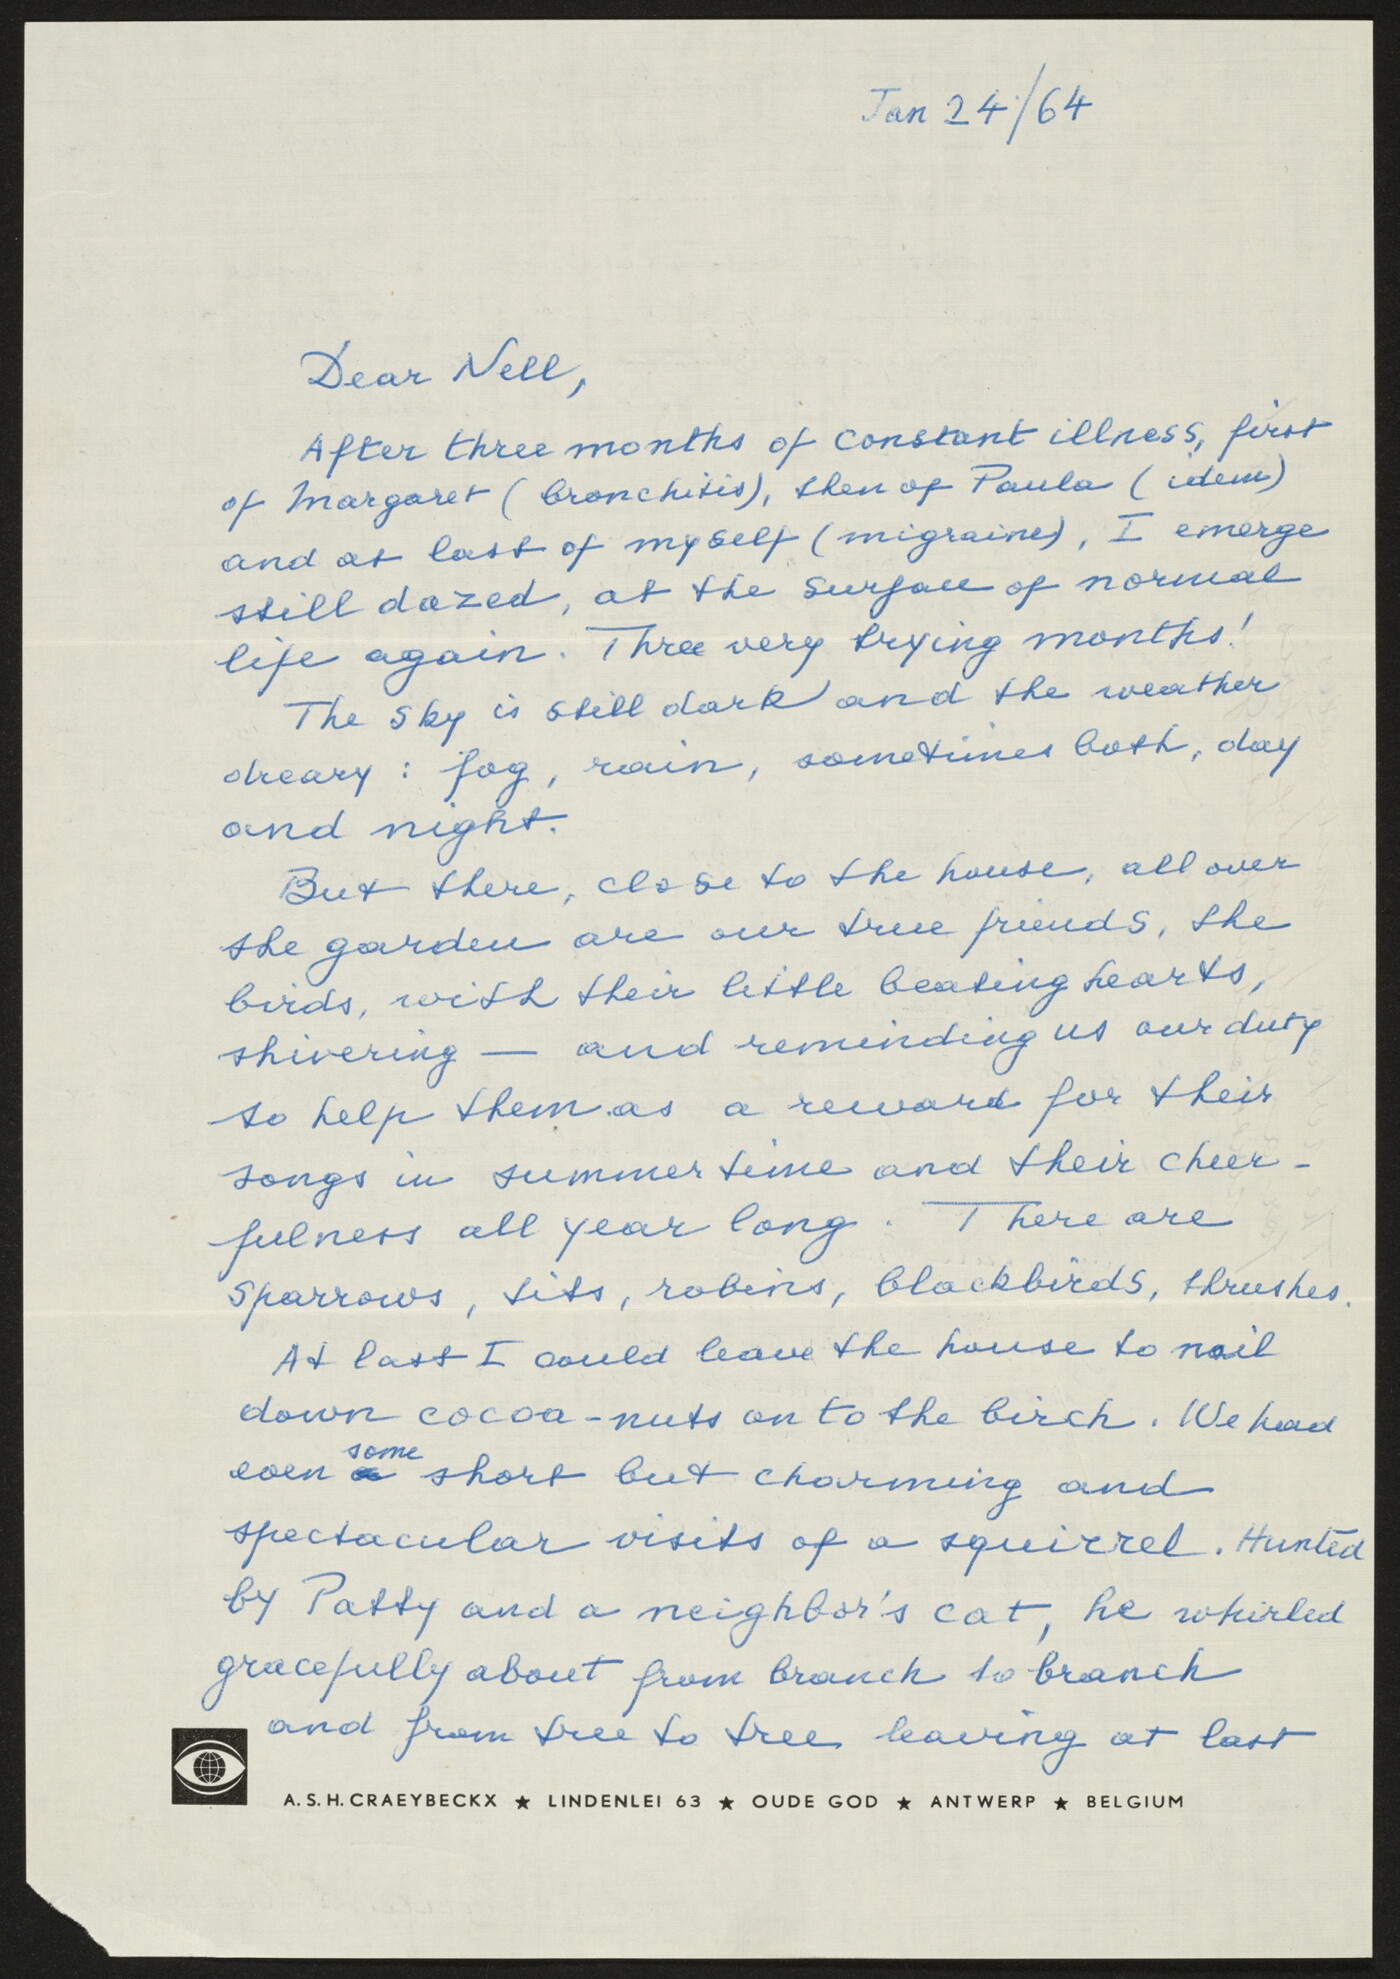 Jan 24/64
Dear Nell,
After three months of constant illness, first
of Margaret (bronchitis), then of Paula (idem)
and at last of myself (migraine), I emerge
still dazed, at the surface of normal
life again. Three very trying months!
The sky is still dark and the weather
dreary: fog, rain, sometimes both, day
and night.
But there, close to the house, all over
the garden are our true friends, the
birds, with their little beating hearts,
shivering — and reminding us our duty
to help them as a reward for their
songs in summertime and their cheer-
fulness all year long. There are
sparrows, tits, robins, blackbirds, thrushes.
At last I could leave the house to nail
down cocoa-nuts on to the birch. We had
even some short but charming and
spectacular visits of a squirrel. Hunted
by Patsy and a neighbor's cat, he whirled
gracefully about from branch to branch
and from tree to tree leaving at last
A. S. H. CRAEYBECKX ★ LINDENLEI 63 ★ OUDE GOD ★ ANTWERP ★ BELGIUM